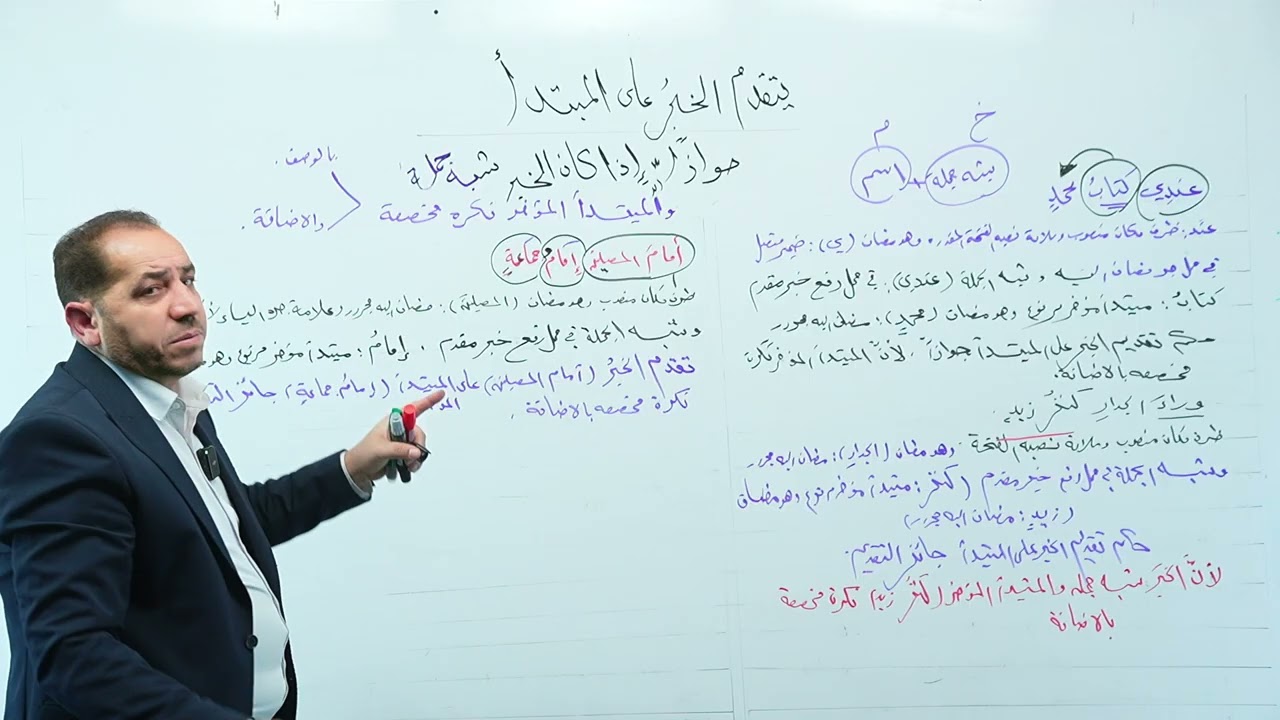 يتقدم الخبرُ على المبتدأ
جوازًا إذا كان الخبر شبه جملة
والمبتدأ المؤخر نكرة مخصصة
بالوصف
والاضافة
خ
م
شبه جملة + اسم
عندي كتابُ محمدٍ
عند: ظرف مكان منصوب وعلامة نصبه الفتحة المقدره وهو مضاف (ي): ضمير متصل
في محل جر مضاف اليه وشبه الجملة (عندي): في محل رفع خبر مقدم
كتابُ: مبتدأ مؤخر مرفوع وهو مضاف (محمدٍ): مضاف اليه مجرور
حكم تقديم الخبر على المبتدأ جوازاً، لأنَّ المبتدأ المؤخر نكرة
مخصصه بالاضافة.
وراءَ الجدارِ كنزُ زيدٍ.
ظرف مكان منصوب وعلامة نصبه الفتحة وهو مضاف (الجدارِ): مضاف اليه مجرور
وشبه الجملة في محل رفع خبر مقدم (كنزُ: مبتدأ مؤخر مرفوع وهو مضاف
(زيدٍ: مضاف اليه مجرور)
حكم تقديم الخبر على المبتدأ جائز التقديم.
لأنَّ الخبرَ شبه جملة والمبتدأ المؤخر (كنزُ زيدٍ) نكرة مخصصة
بالاضافة
أمامَ المصلينَ إمامُ جماعةٍ
ظرف مكان منصوب وهو مضاف (المصلينَ): مضاف اليه مجرور وعلامة جره الياء
وشبه الجملة في محل رفع خبر مقدم، إمامُ: مبتدأ مؤخر مرفوع وهو
تقدم الخبرُ (أمام المصلين) على المبتدأ (إمامُ جماعةٍ) جائز
نكرة مخصصه بالاضافة.